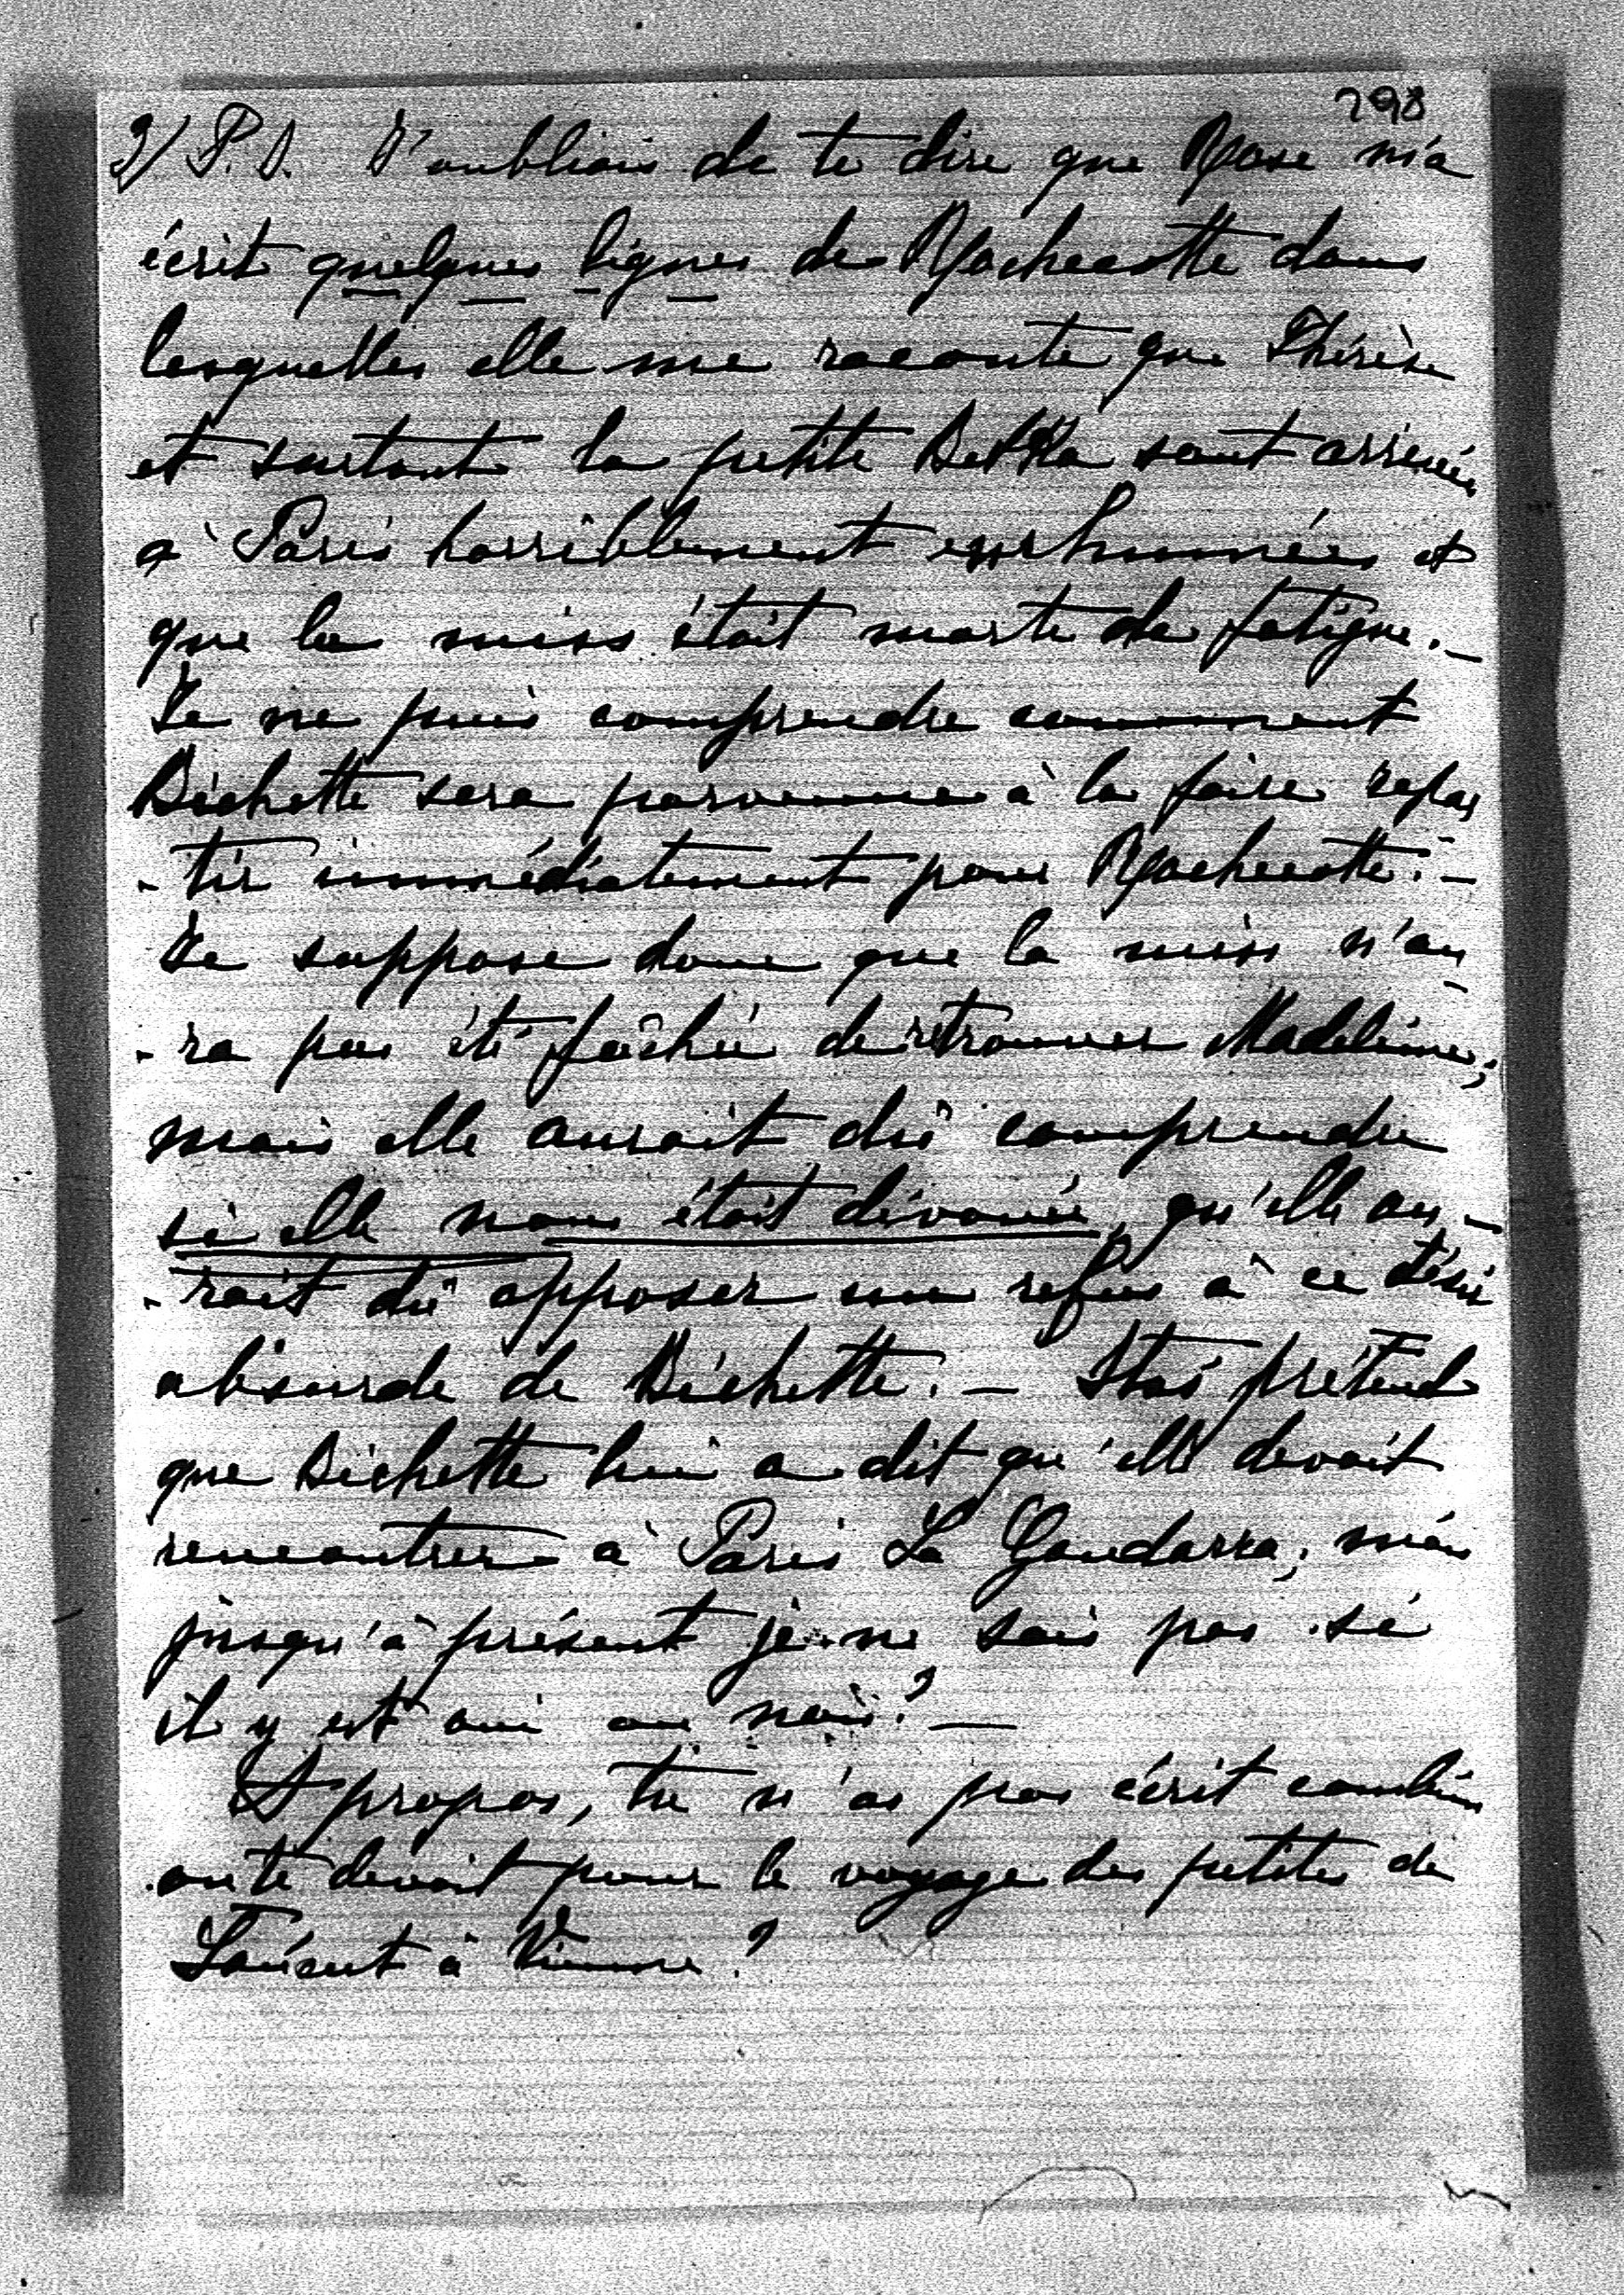 298
2/ P. S. J'oubliais de te dire que Rose m'a
écrit quelques lignes de Rochecotte dans
lesquelles elle me raconte que Thérèse
et surtout la petite Betka sont arrivées
à Paris horriblement enrhumées et
que la miss était morte de fatigue. _
Je ne puis comprendre comment
Bichette sera parvenue à la faire repar
- tir immédiatement pour Rochecotte. _
Je suppose donc que la miss n'au
- ra pas été fâchée de retrouver Madeleine;
mais elle aurait dû comprendre
si elle nous était dévouée, qu'elle au -
- rait dû opposer un refus à ce désir
absurde de Bichette. _ Stas prétend
que Bichette lui a dit qu'elle devait
rencontrer à Paris La Gandara; mais
jusqu'à présent je ne sais pas si
il y est oui ou non? _
A propos, tu n'as pas écrit combien
on te devait pour le voyage des petites de
à Vienne?